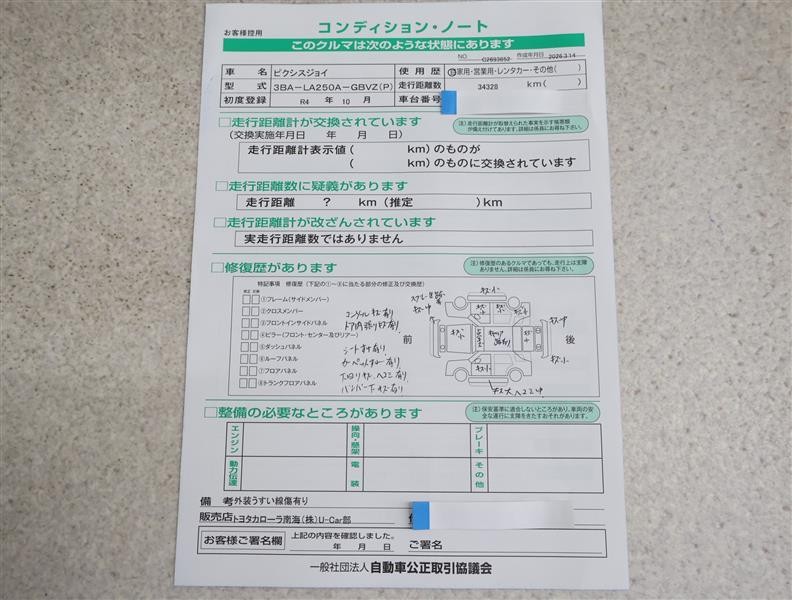 お客様控用
コンディション・ノート
このクルマは次のような状態にあります
NO C2693652 作成年月日 2026.3.14
車名 ピクシスジョイ 使用歴 自家用・営業用・レンタカー・その他( )
型式 3BA-LA250A-GBVZ(P) 走行距離数 34328 km( )
初度登録 R4 年 10 月 車台番号
□走行距離計が交換されています
(交換実施年月日 年 月 日)
注)走行距離計が取替えられた事実を示す帳票類
が備え付けてあります。詳細は係員にお尋ね下さい。
走行距離計表示値( km)のものが
( km)のものに交換されています
□走行距離数に疑義があります
走行距離 ? km(推定 )km
□走行距離計が改ざんされています
実走行距離数ではありません
□修復歴があります
注)修復歴のあるクルマであっても、走行上は支障
ありません。詳細は係員にお尋ね下さい。
特記事項 修復歴(下記の①~⑧に当たる部分の修正及び交換歴)
修正 交換
①フレーム(サイドメンバー)
②クロスメンバー
③フロントインサイドパネル
④ピラー(フロント・センター及びリアー)
⑤ダッシュパネル
⑥ルーフパネル
⑦フロアパネル
⑧トランクフロアパネル
コンソールキズ有り
ドア内張りキズ有り
シートキズ有り
前
後
キズ・小
キズ中
□整備の必要なところがあります
注)保安基準に適合しないところがあり、車両の安
全な運行に支障をきたすおそれがあります。
エンジン
操向・懸架
ブレーキ
動力伝達
電装
その他
備考 外装うすい線傷有り
販売店 トヨタカローラ南海(株)U-Car部
お客様ご署名欄 上記の内容を確認しました。
年 月 日 ご署名
一般社団法人 自動車公正取引協議会